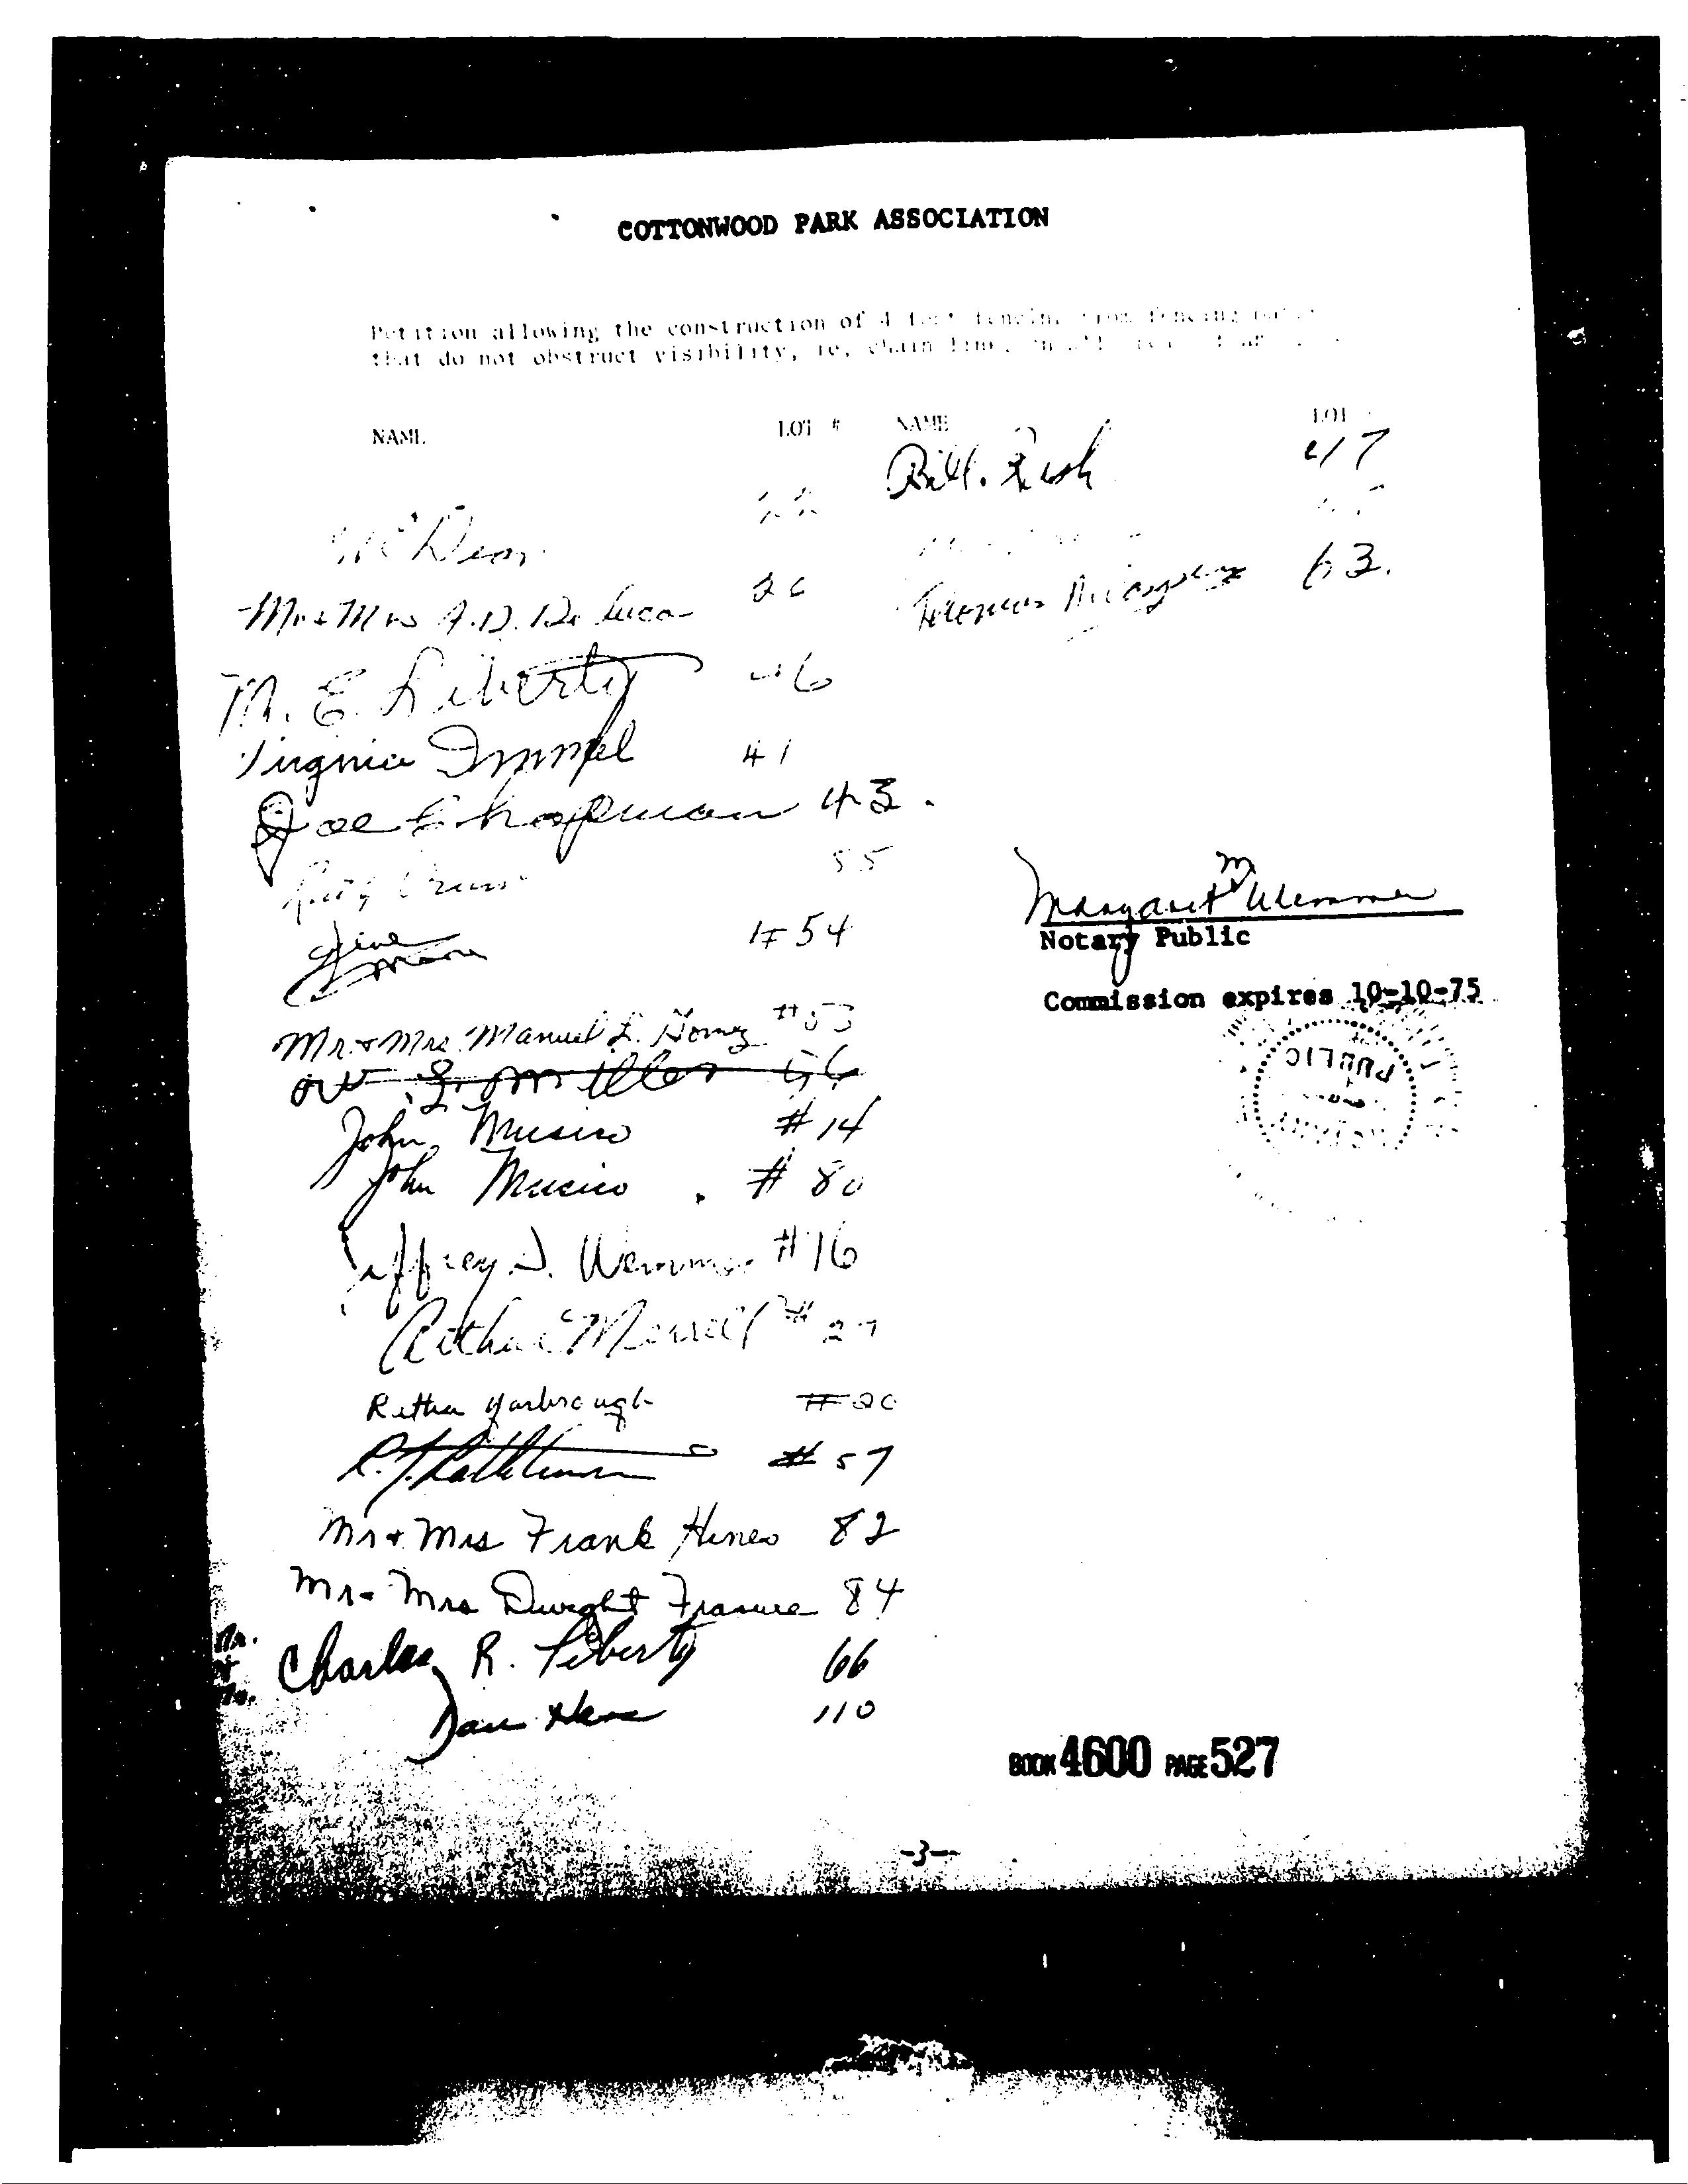 COTTONWOOD PARK ASSOCIATION
Petition allowing the construction of 4 foot
that do not obstruct visibility, ie, chain link,
NAME LOT # NAME LOT
Bill Rush 47
Mr & Mrs A.D. De Luca 26
63.
M. E. Liberty 46
Virginia Immel 41
Joe Chapman 43.
55
# 54
Mr. & Mrs. Manuel L. Gomez #53
John Musico # 14
John Musico # 80
Jeffrey J. Wemmer # 16
Arthur Merrell # 27
Retha Yarbrough # 20
# 57
Mr & Mrs Frank Hines 82
Mr & Mrs Dwight Frasure 84
Mr. & Mrs. Charles R. Liberty 66
Dan 110
Margaret M Wemmer
Notary Public
Commission expires 10-10-75
PUBLIC
BOOK 4600 PAGE 527
-3-